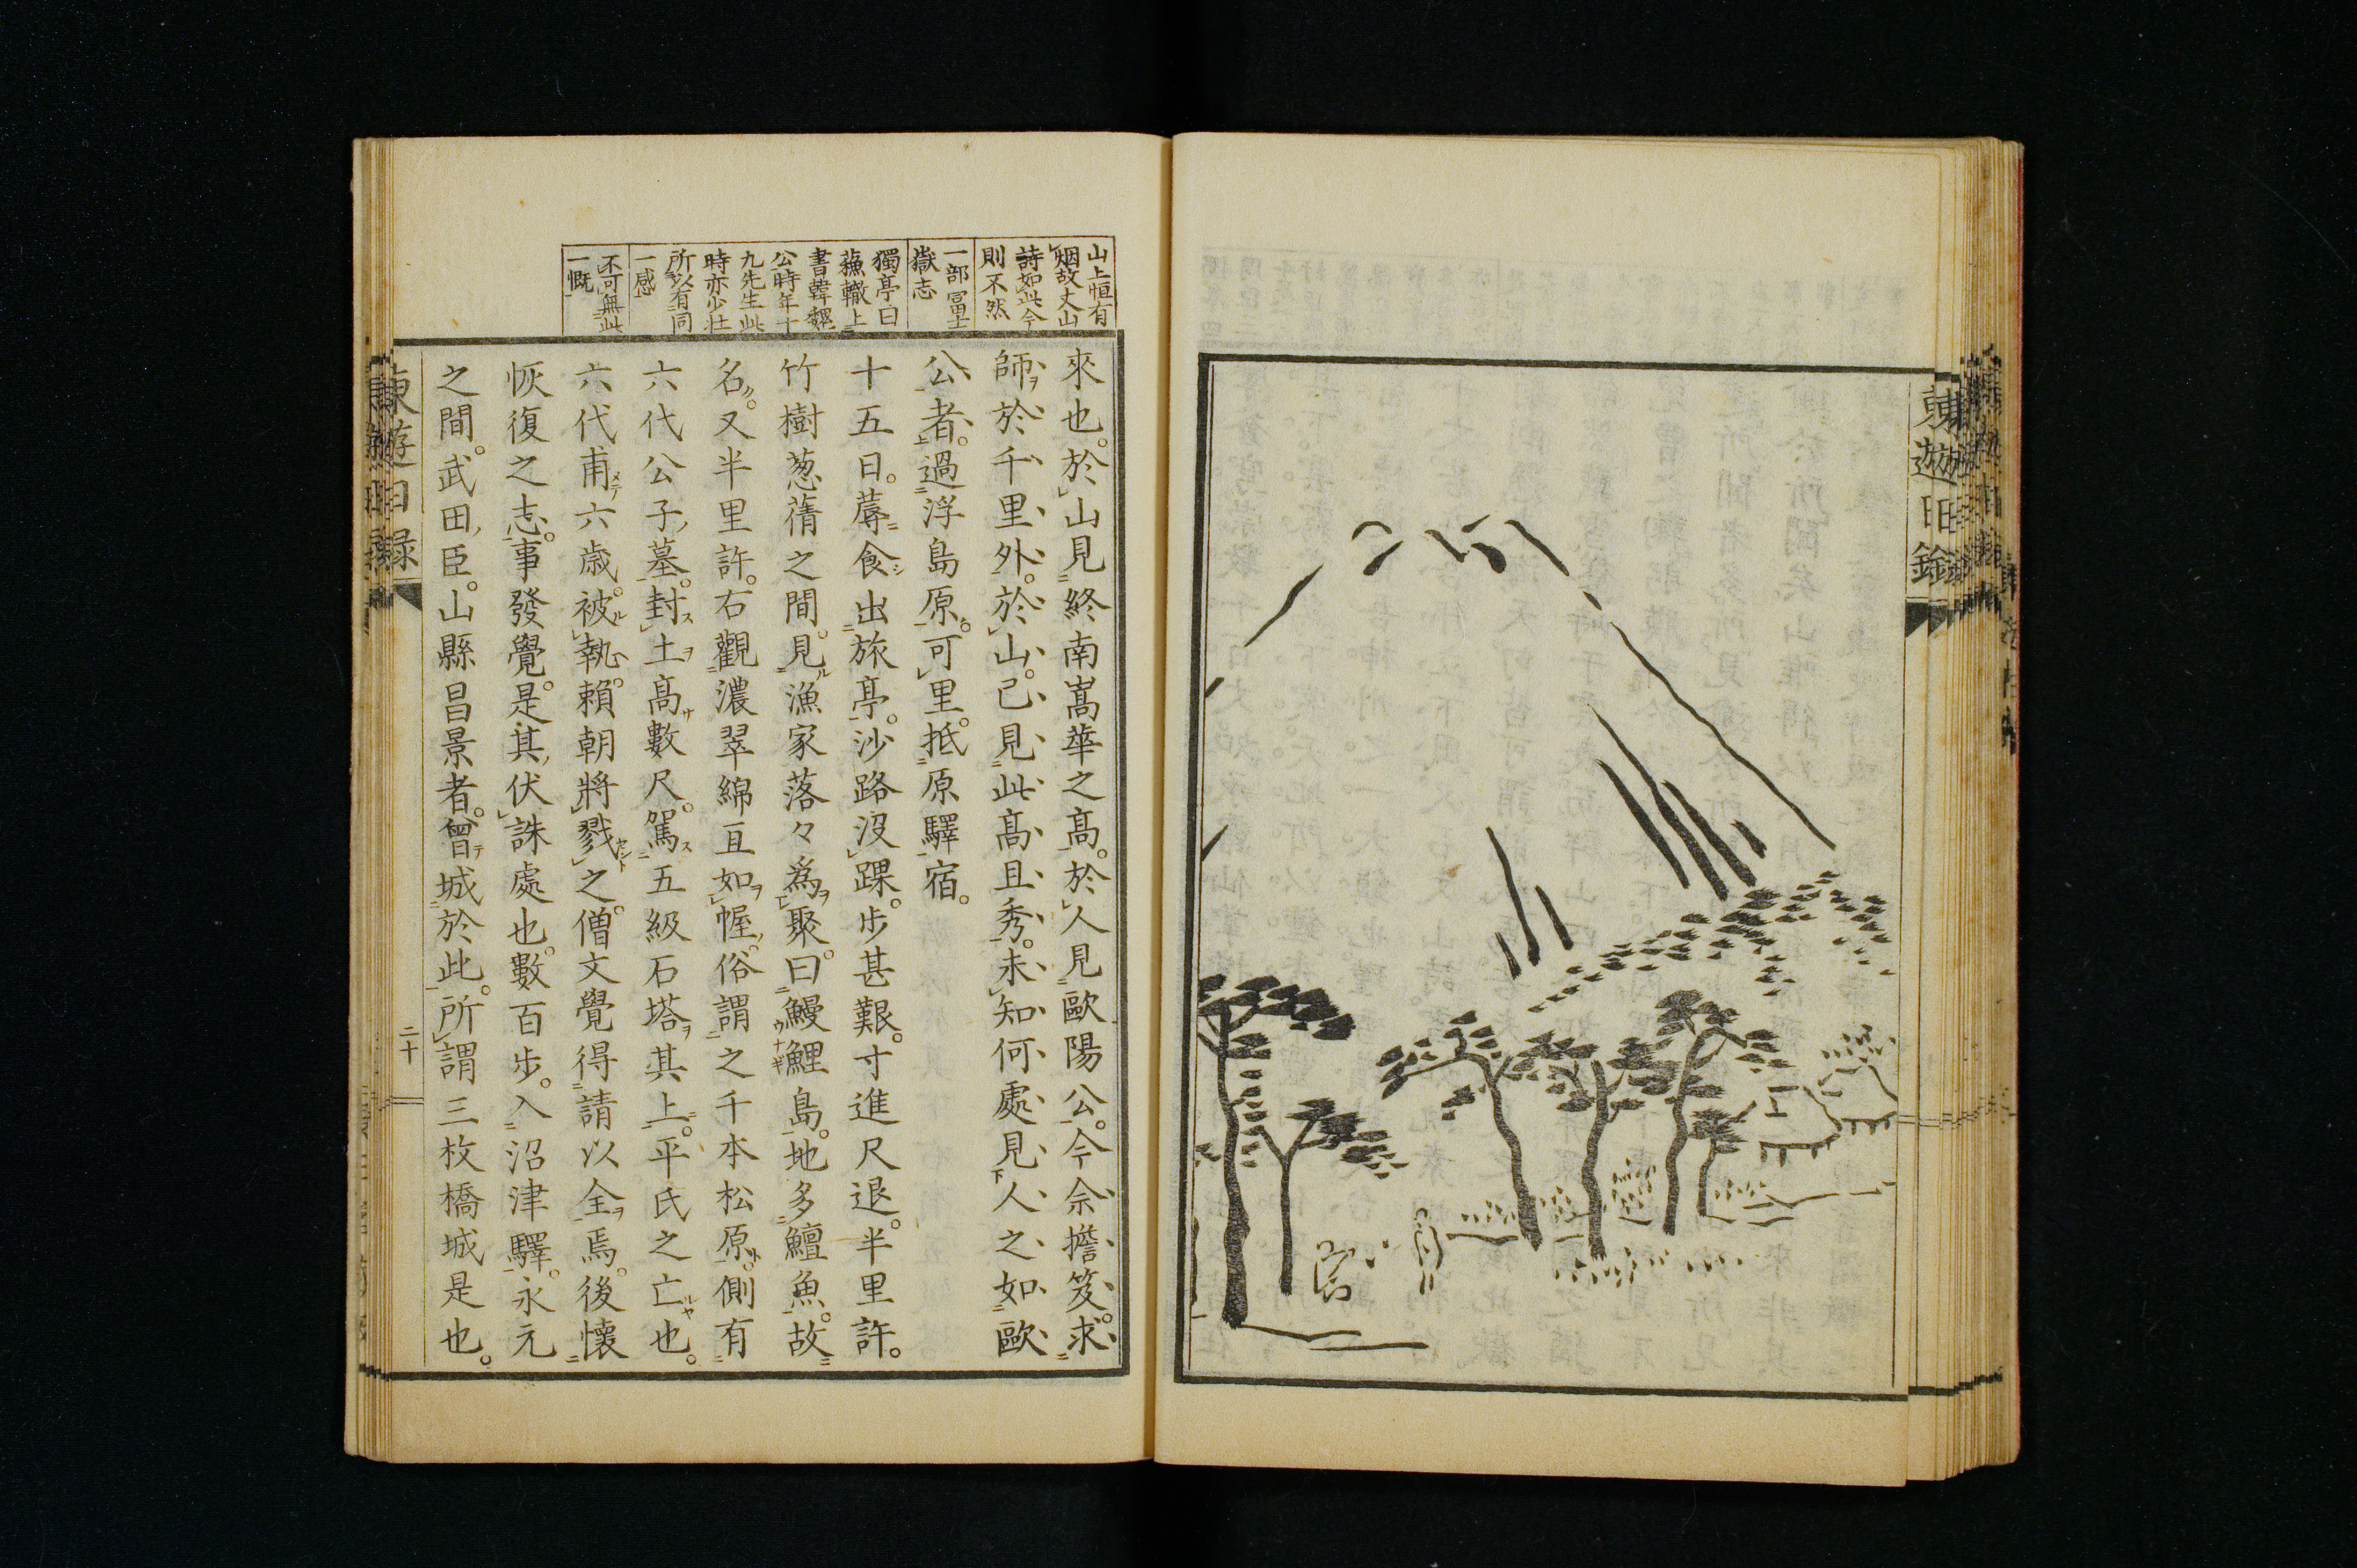 東遊日錄
山上恒有
烟故丈山
詩如此今
則不然
一部冨士
嶽志
獨亭曰
蘓轍上
書韓魏
公時年十
九先生此
時亦少壮
所以有同
一感
不可無此
一慨
來也。於山見終南嵩華之高。於人見歐陽公。今余擔笈。求
師ヲ於千里外。於山。已見此高且秀。未知何處見人之如歐
公者。過浮島原。可里。抵原驛宿。
十五日。蓐食シ出旅亭。沙路沒踝。步甚艱。寸進尺退。半里許。
竹樹葱蒨之間。見ル漁家落々爲ヲ聚。曰鰻鯉島。地多鱣魚。故
名ク。又半里許。右觀濃翠綿亘如ヲ幄。俗謂之千本松原。側有
六代公子ノ墓。封ス土ヲ高サ數尺。駕ス五級石塔ヲ其上。平氏之亡ルヤ也。
六代甫メテ六歳。被ル執ヘ。賴朝將戮セント之。僧文覺得請以全ヲ焉。後懷
恢復之志。事發覺。是其伏誅處也。數百步。入沼津驛。永元
之間。武田ノ臣。山縣昌景者。曾テ城於此。所謂三枚橋城是也。
東遊日録
二十